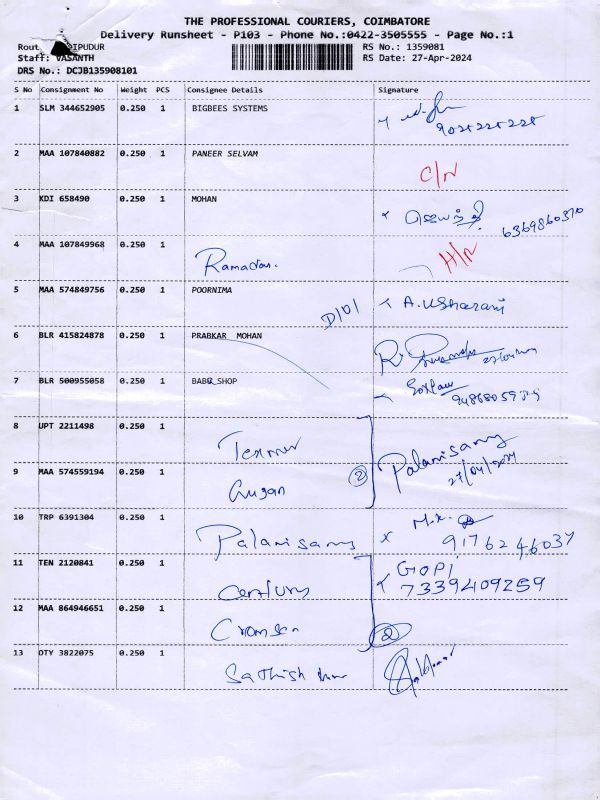 THE PROFESSIONAL COURIERS, COIMBATORE
Delivery Runsheet - P103 - Phone No.:0422-3505555 - Page No.:1
Rout IPUDUR RS No.: 1359081
Staff: VASANTH RS Date: 27-Apr-2024
DRS No.: DCJB135908101
S No Consignment No Weight PCS Consignee Details Signature
1 SLM 344652905 0.250 1 BIGBEES SYSTEMS
2 MAA 107840882 0.250 1 PANEER SELVAM C/N
3 KDI 658490 0.250 1 MOHAN ஜெயந்தி
4 MAA 107849968 0.250 1 H/N
5 MAA 574849756 0.250 1 POORNIMA D/D/ A. Usharani
6 BLR 415824878 0.250 1 PRABKAR MOHAN
7 BLR 500955058 0.250 1 BABU SHOP
8 UPT 2211498 0.250 1
9 MAA 574559194 0.250 1 Gugan 2 Palanisamy 27/04/2024
10 TRP 6391304 0.250 1 Palanisamy x 9176246037
11 TEN 2120841 0.250 1 Century GOPI
7339409259
12 MAA 864946651 0.250 1 2
13 OTY 3822075 0.250 1 Sathish